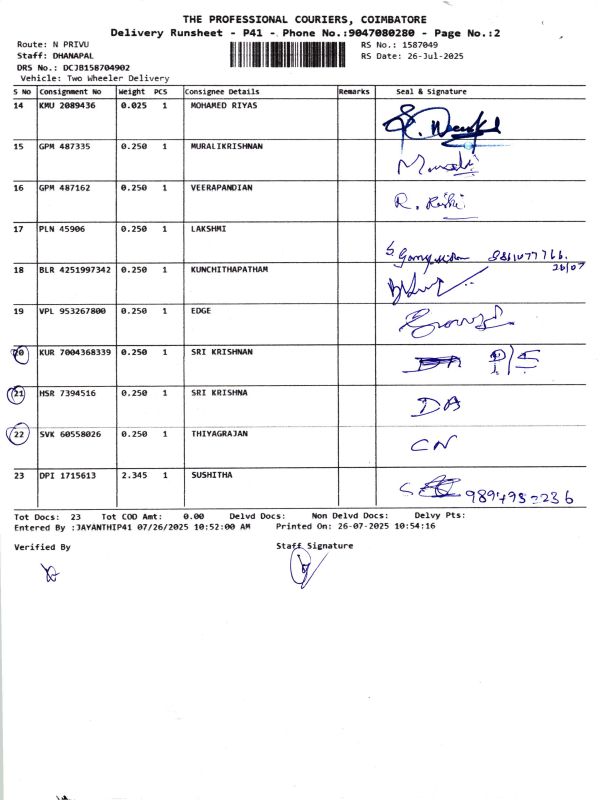 THE PROFESSIONAL COURIERS, COIMBATORE
Delivery Runsheet - P41 - Phone No.:9047080280 - Page No.:2
Route: N PRIVU RS No.: 1587049
Staff: DHANAPAL RS Date: 26-Jul-2025
DRS No.: DCJB158704902
Vehicle: Two Wheeler Delivery
S No Consignment No Weight PCS Consignee Details Remarks Seal & Signature
14 KMU 2089436 0.025 1 MOHAMED RIYAS
15 GPM 487335 0.250 1 MURALIKRISHNAN
16 GPM 487162 0.250 1 VEERAPANDIAN
R. Rishi
17 PLN 45906 0.250 1 LAKSHMI
26/07
18 BLR 4251997342 0.250 1 KUNCHITHAPATHAM
19 VPL 953267800 0.250 1 EDGE
20 KUR 7004368339 0.250 1 SRI KRISHNAN
21 HSR 7394516 0.250 1 SRI KRISHNA DA
22 SVK 60558026 0.250 1 THIYAGRAJAN CN
23 DPI 1715613 2.345 1 SUSHITHA
Tot Docs: 23 Tot COD Amt: 0.00 Delvd Docs: Non Delvd Docs: Delvy Pts:
Entered By :JAYANTHIP41 07/26/2025 10:52:00 AM Printed On: 26-07-2025 10:54:16
Verified By Staff Signature